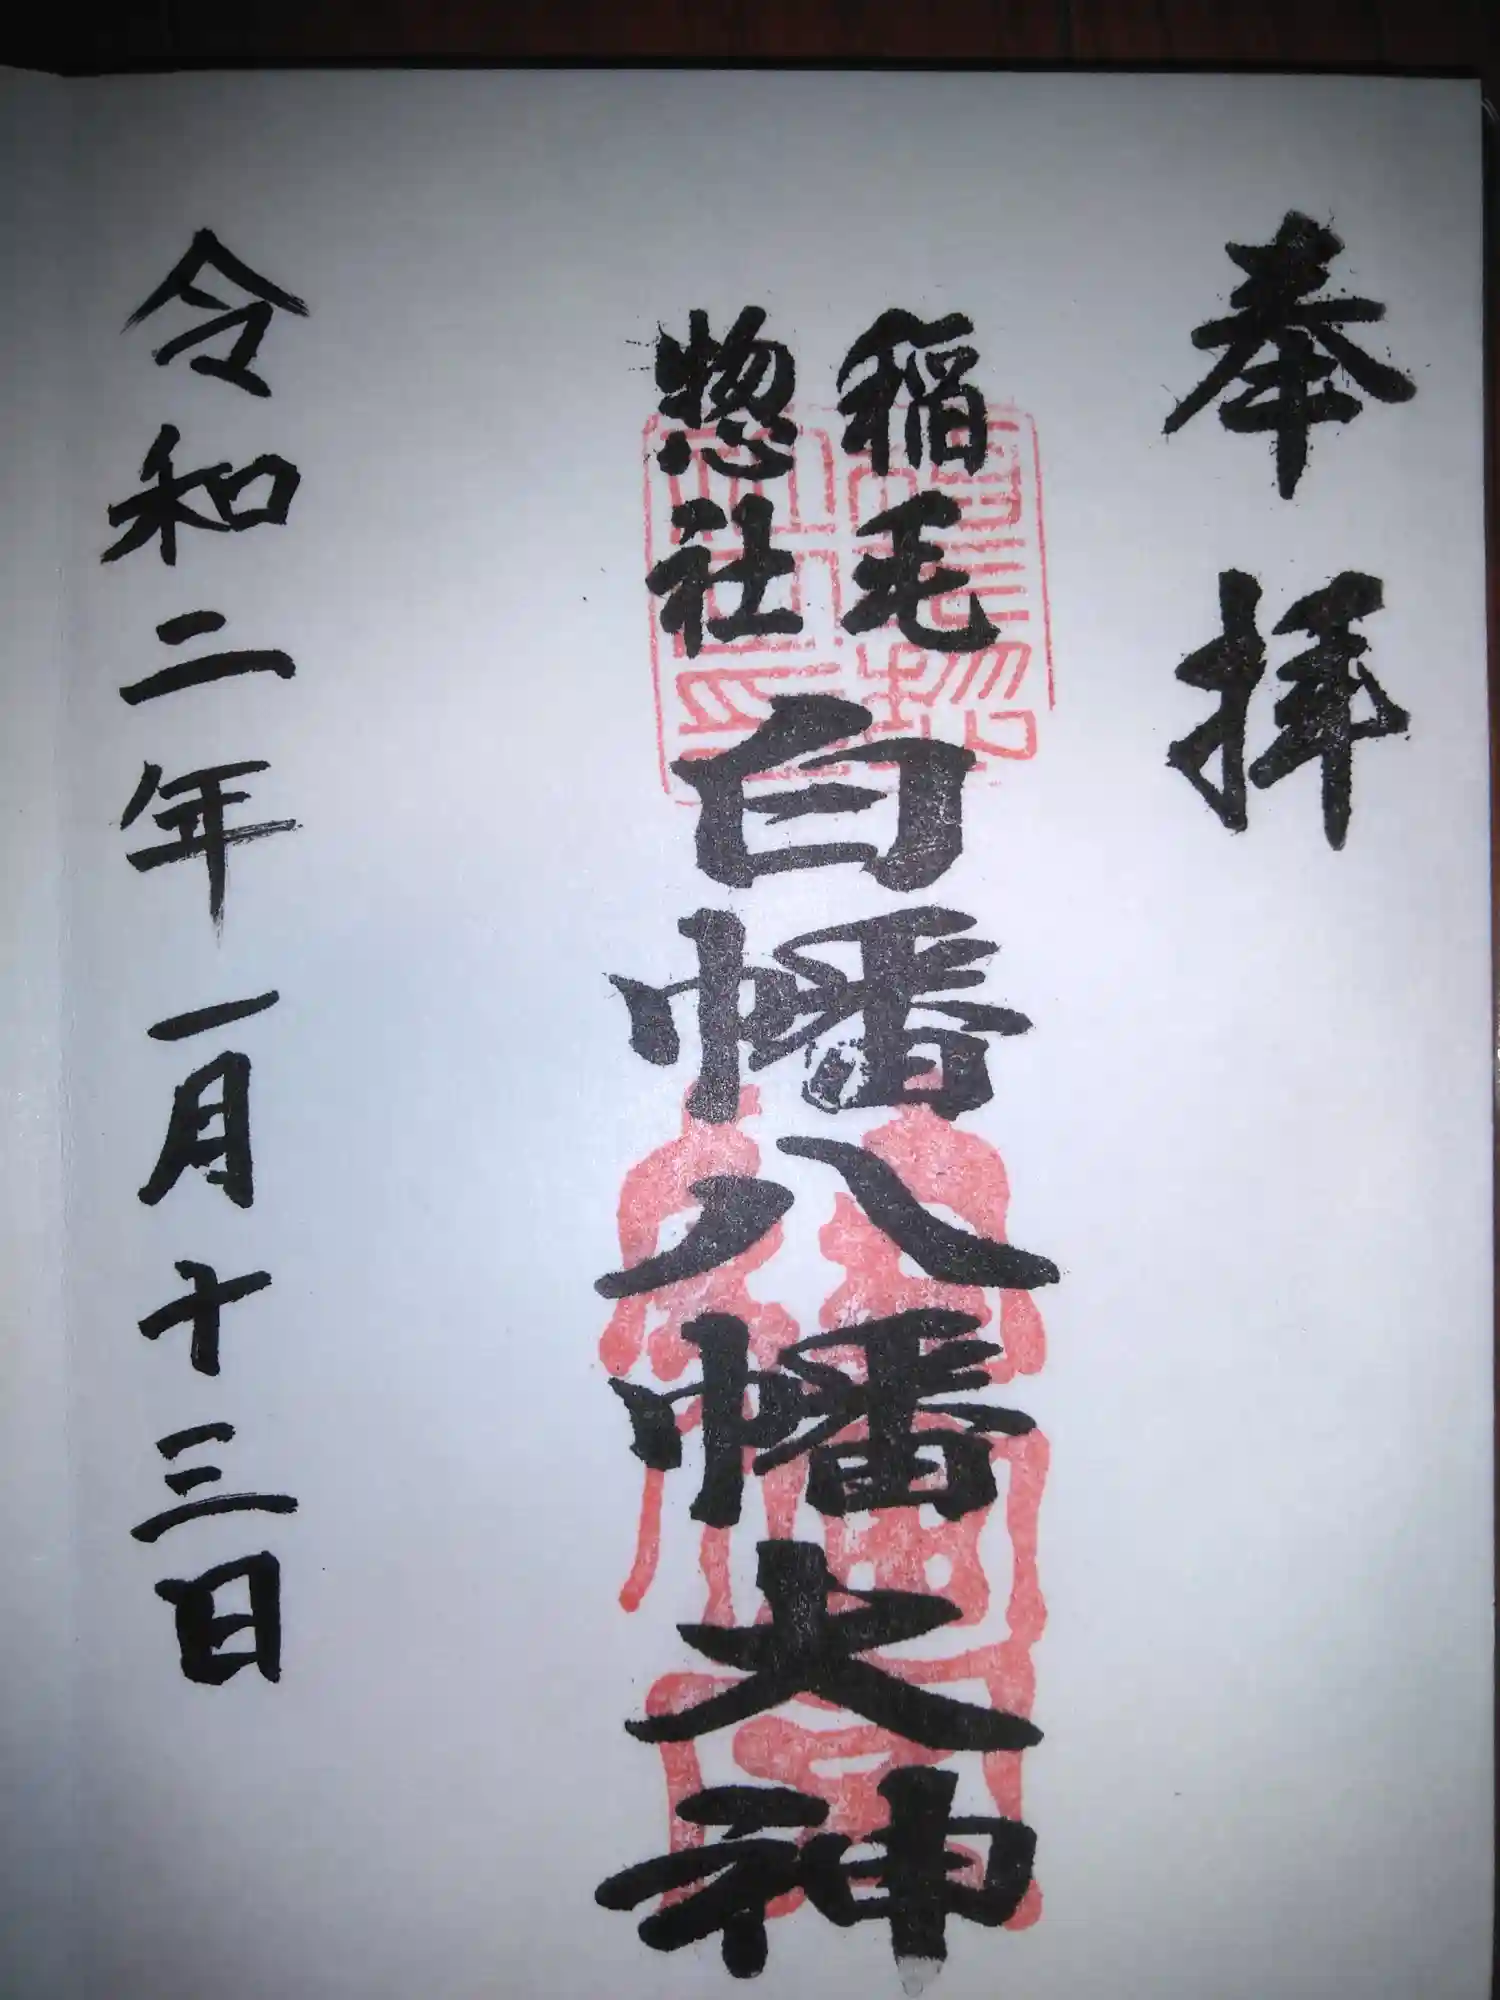 奉拝
稲毛
惣社
白幡八幡大神
令和二年一月十三日